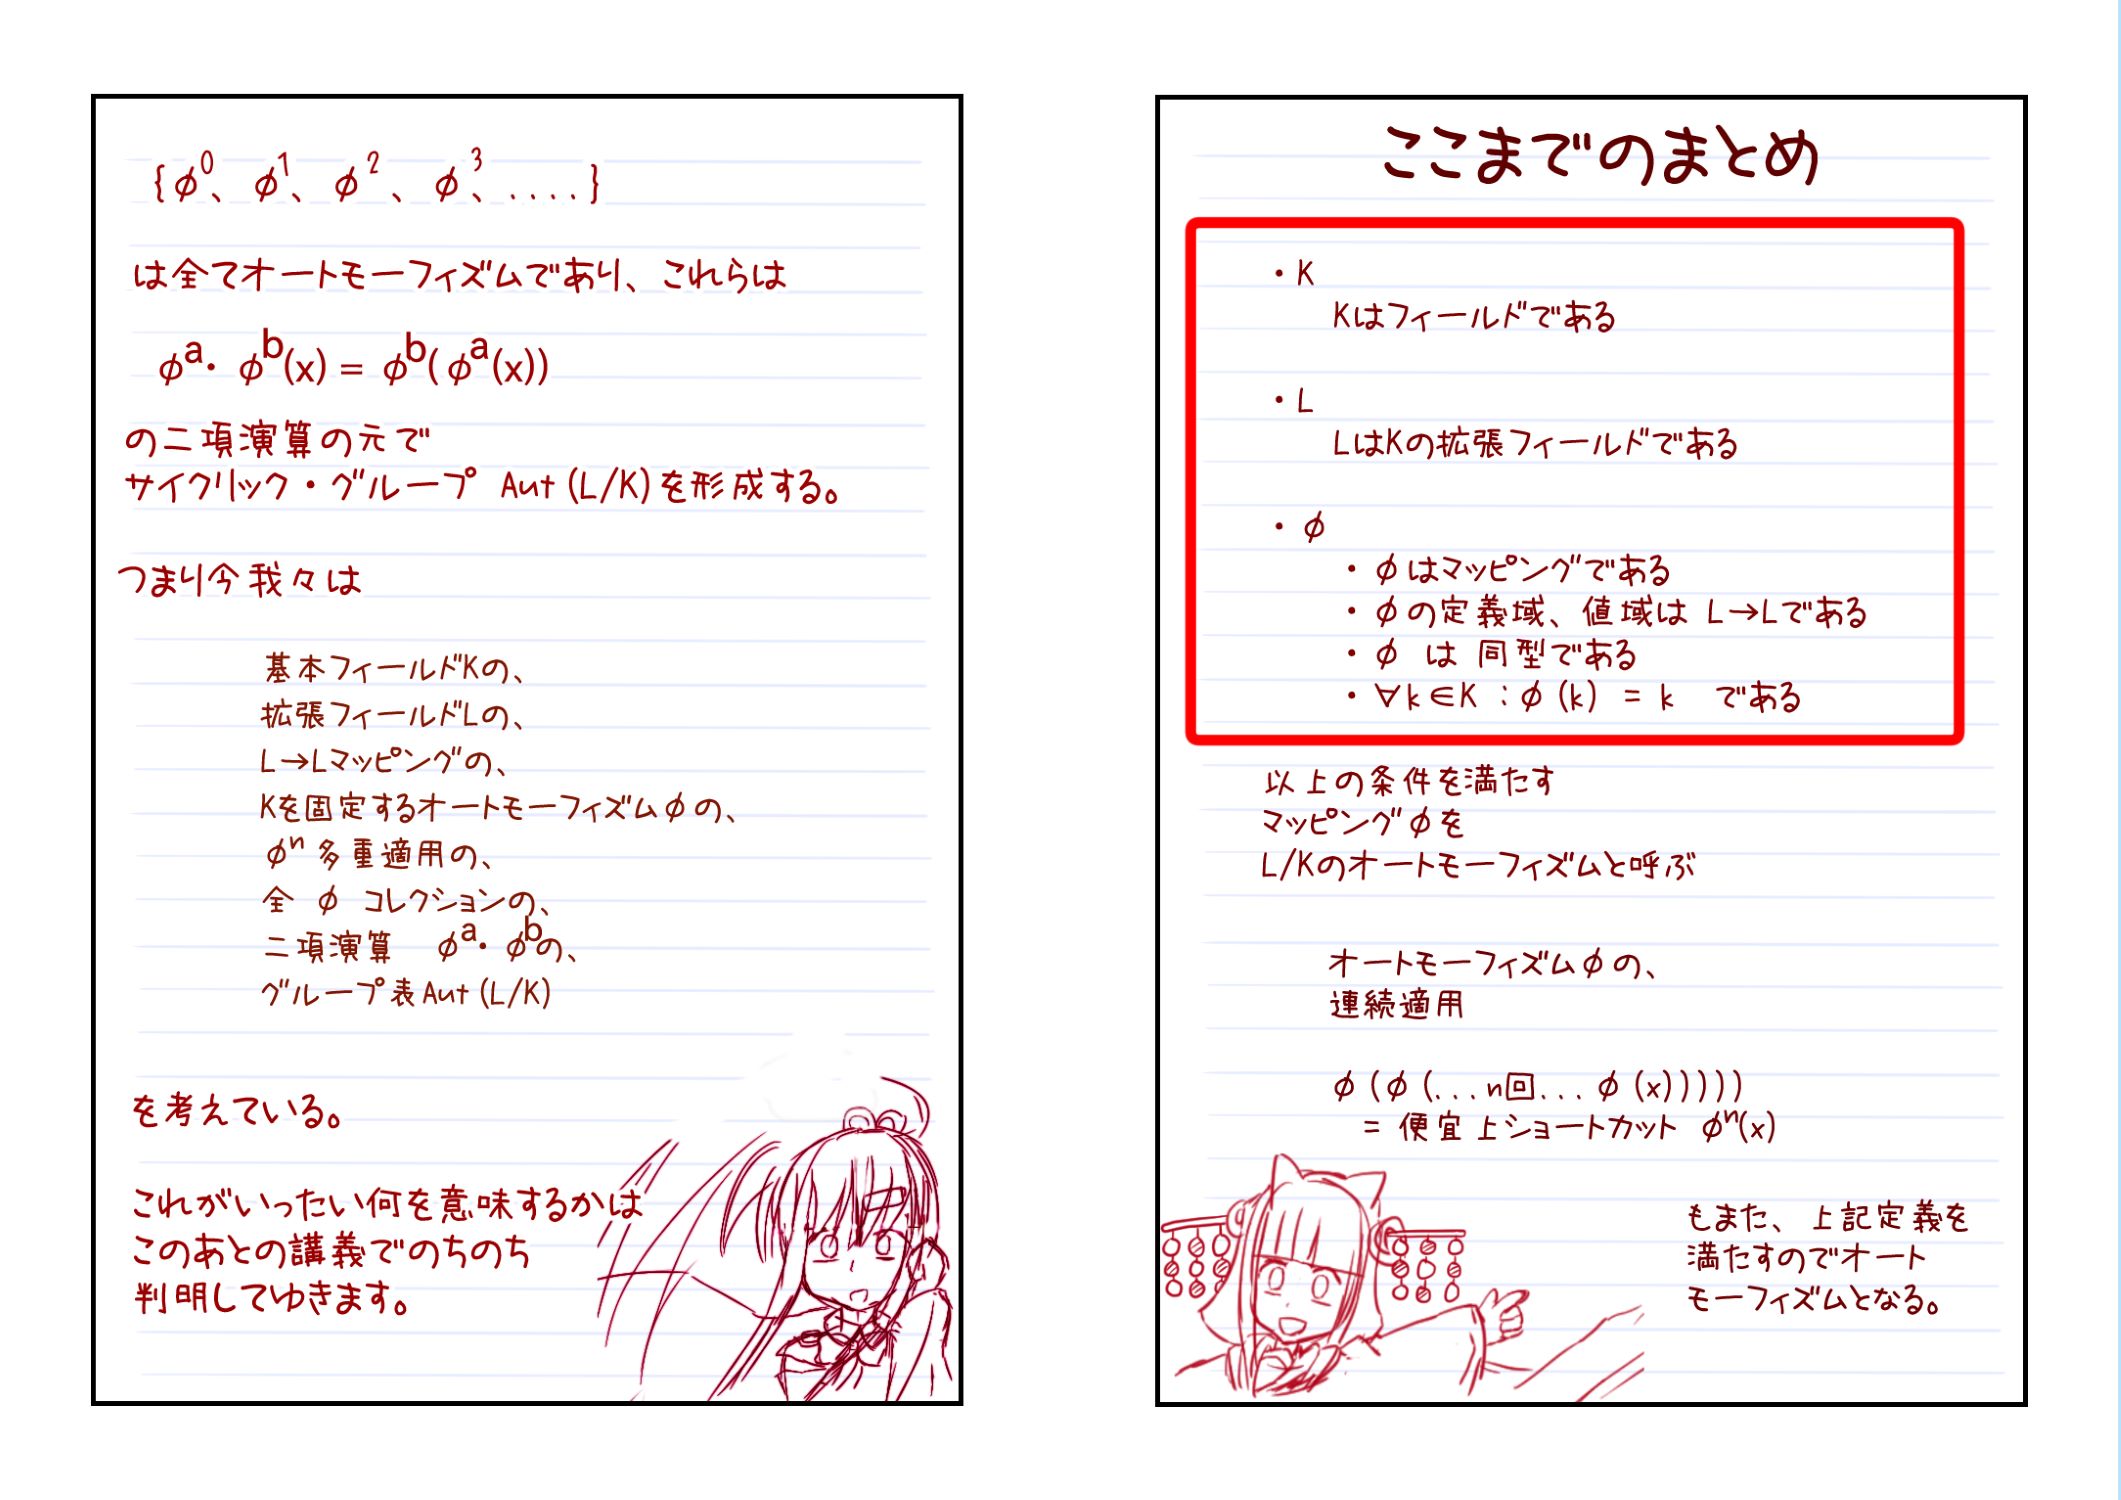 ここまでのまとめ
・K
Kはフィールドである
・L
LはKの拡張フィールドである
・φ
・φはマッピングである
・φの定義域、値域は L→Lである
・φ は 同型である
・∀k∈K：φ(k) = k である
以上の条件を満たす
マッピングφを
L/Kのオートモーフィズムと呼ぶ
オートモーフィズムφの、
連続適用
φ(φ(...n回...φ(x)))))
= 便宜上ショートカット φⁿ(x)
もまた、上記定義を
満たすのでオート
モーフィズムとなる。
{φ⁰、φ¹、φ²、φ³、....}
は全てオートモーフィズムであり、これらは
φᵃ・φᵇ(x) = φᵇ(φᵃ(x))
の二項演算の元で
サイクリック・グループ Aut(L/K)を形成する。
つまり今我々は
基本フィールドKの、
拡張フィールドLの、
L→Lマッピングの、
Kを固定するオートモーフィズムφの、
φⁿ多重適用の、
全 φ コレクションの、
二項演算 φᵃ・φᵇの、
グループ表Aut(L/K)
を考えている。
これがいったい何を意味するかは
このあとの講義でのちのち
判明してゆきます。